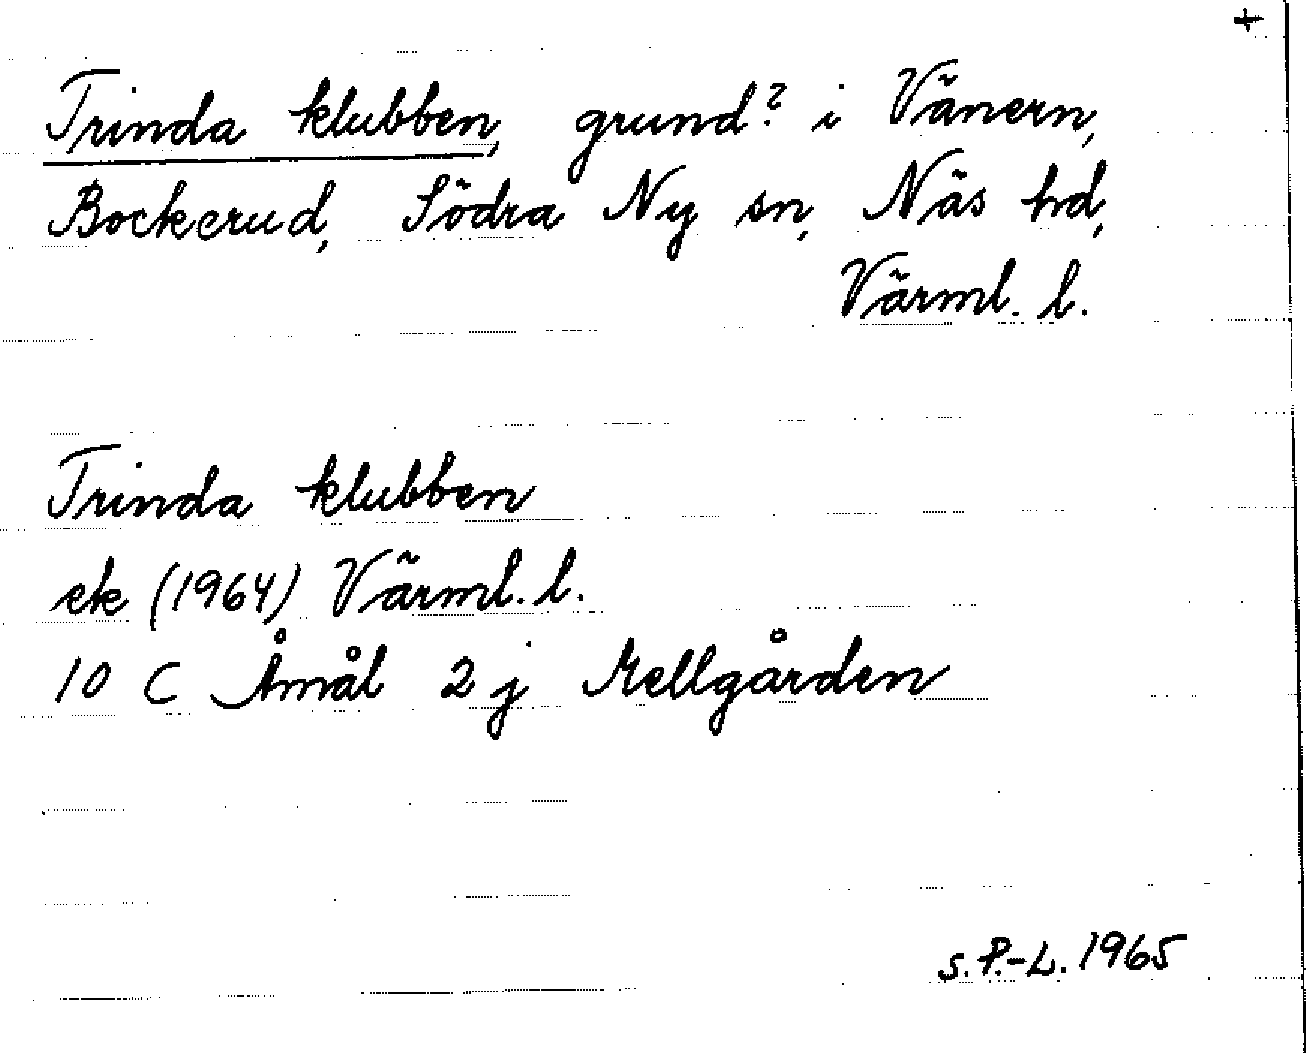 +
Trinda klubben, grund? i Vänern,
Bockerud, Södra Ny sn, Näs hd,
Värml. l.
Trinda klubben
ek (1964) Värml. l.
10 C Åmål 2 j Mellgården
S. P.-L. 1965